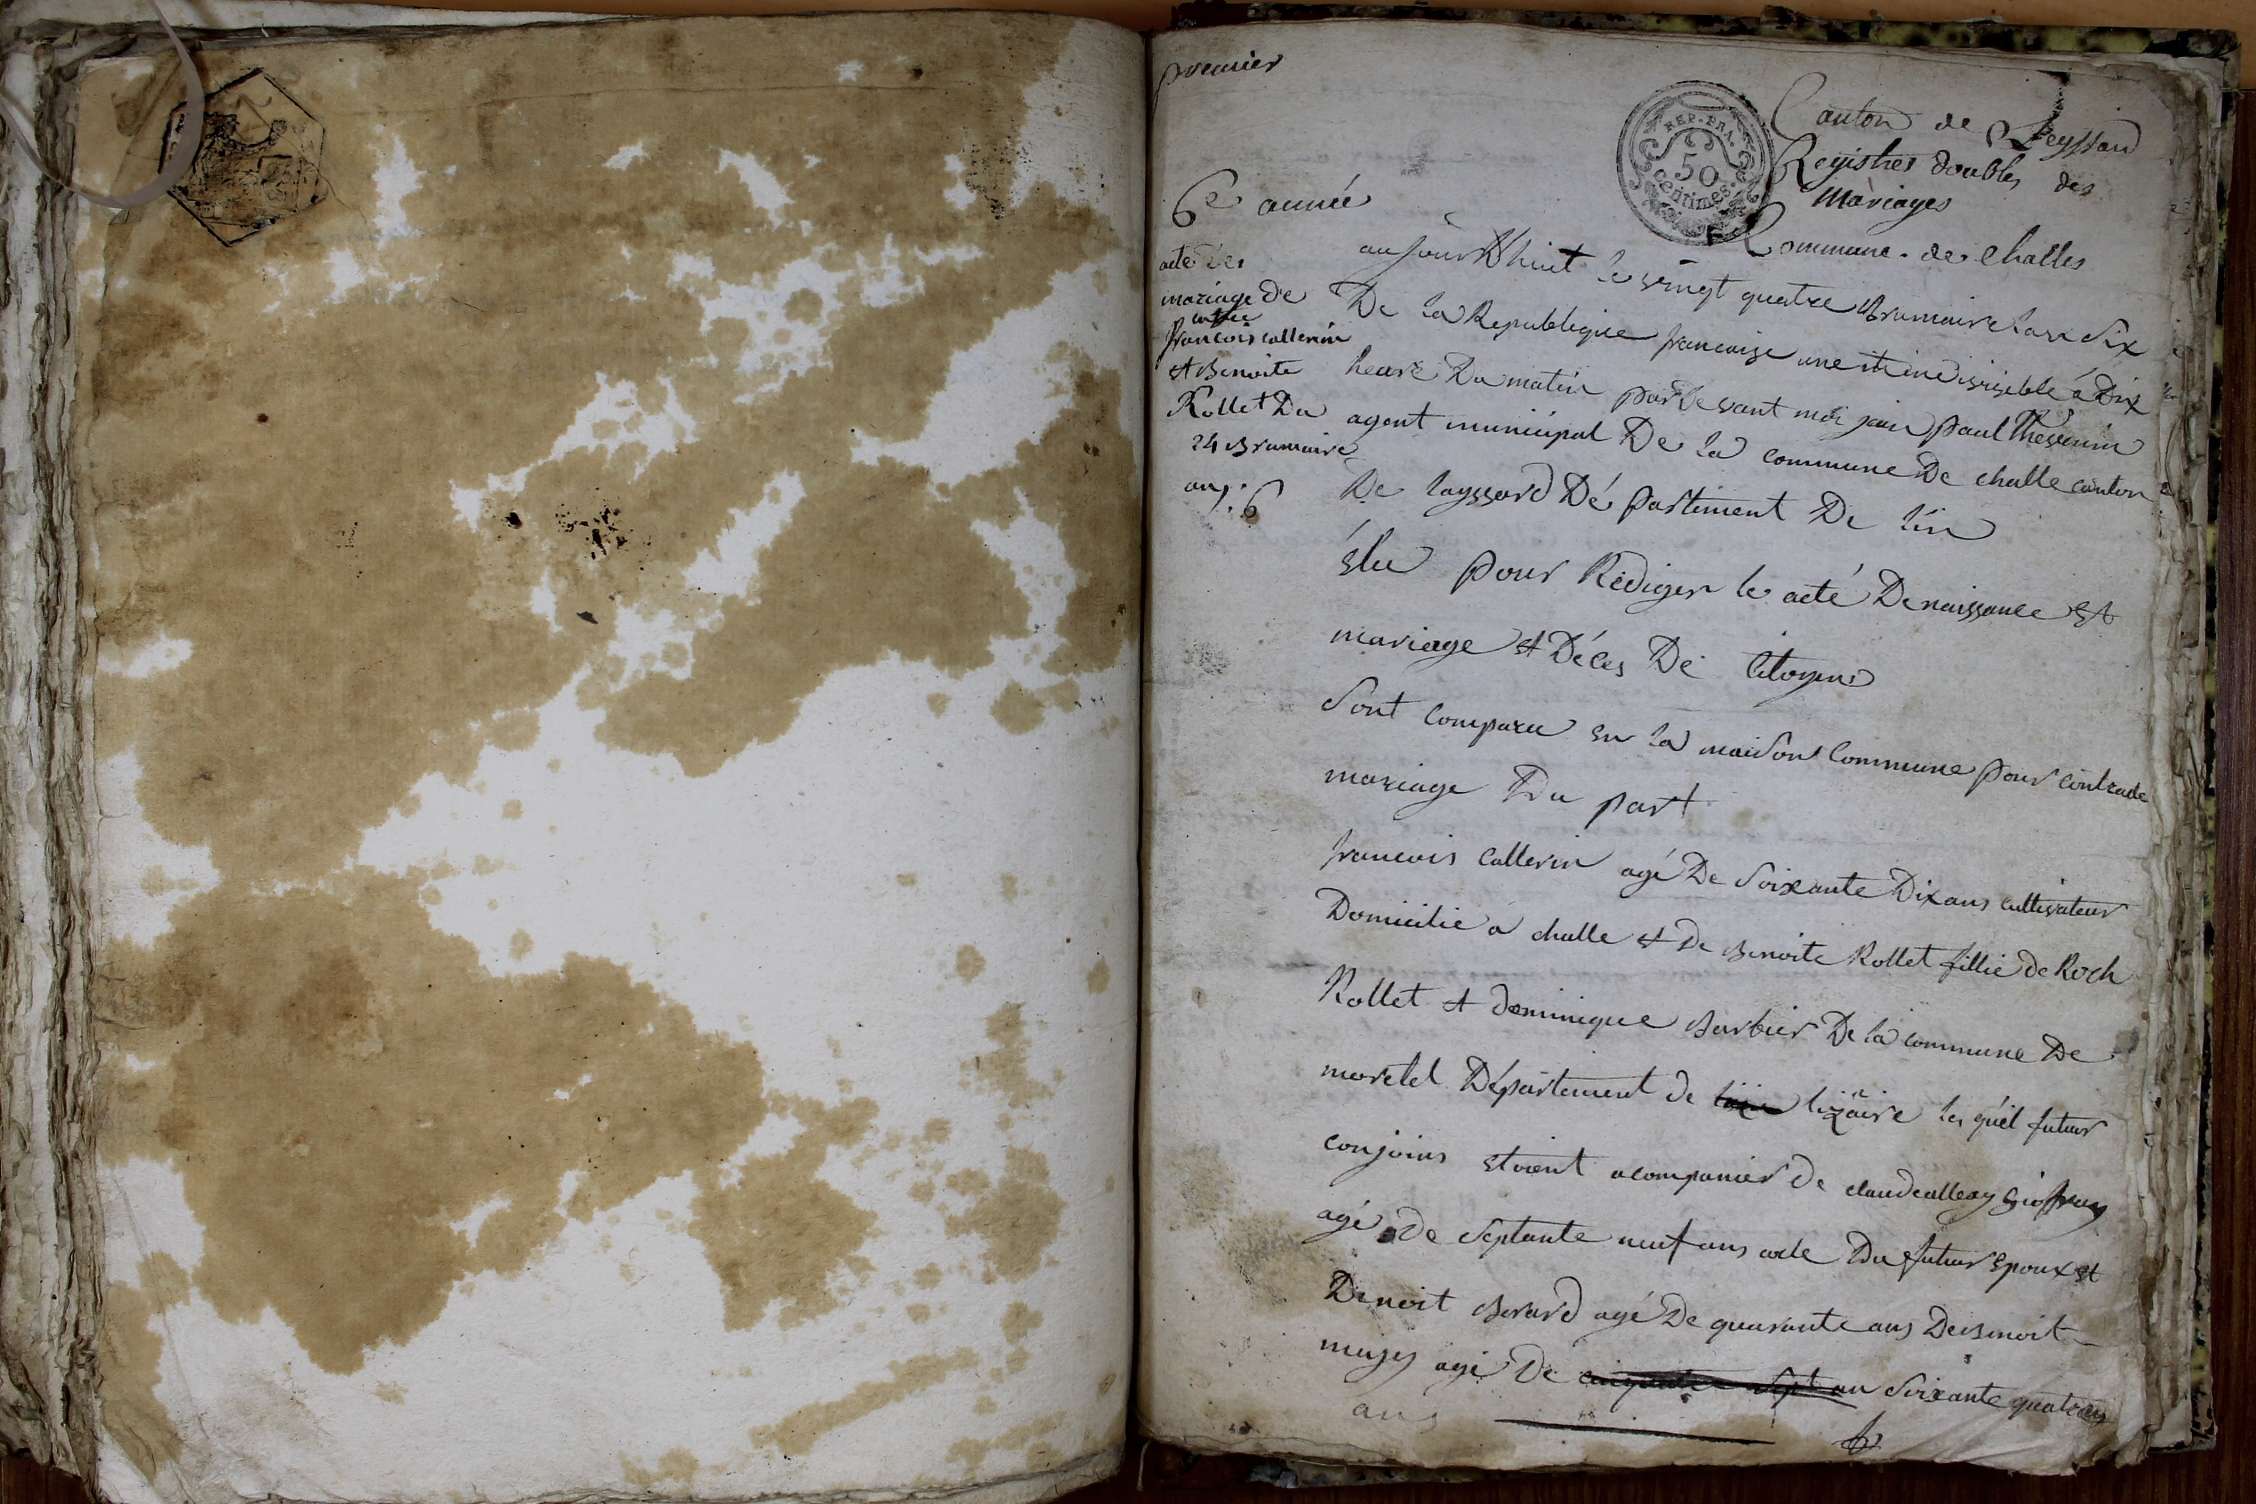 premier
Canton de Leyssard
Registres doubles des
Mariages
Commune de Challes
REP. FRA.
50
centimes.
6e année
acte de
mariage de
entre
francois callerin
et Benoite
Rollet Du
24 Brumaire
an 6
aujourdhuit le vingt quatre Brumaire lan Six
De la Republique francaise une et indivisible à Dix
heure Du matin par Devant moi jan paul Thevenin
agent municipal De la commune De challe canton
De layssard Département De lin
élu pour Rediger le acté De naissance et
mariage et Déces De Citoyens
Sont comparu en la maison Commune pour contracte
mariage Du part
francois callerin agé De Soixante Dix ans cultivateur
Domicilié à challe et De Benoite Rollet fillie de Roch
Rollet et dominique Barbier De la commune De
moretel Département de lizaire les quél futur
conjoins etoient acompanier de claude
agé de Septante neuf ans Du futur Epoux et
Benoit Berard agé De quarante ans De Benoit
agé De cinquante Sept an Soixante quatre
ans